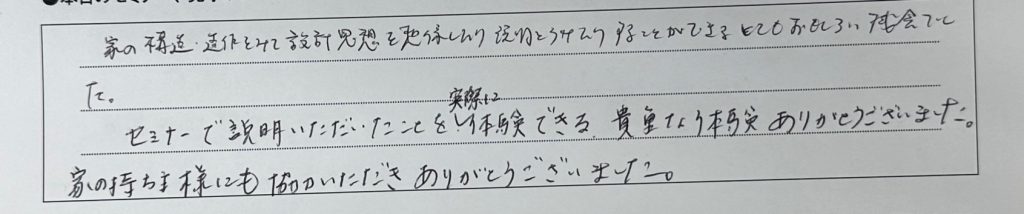 家の構造・造作をみて設計思想を想像したり説明をうけたりすることができるとてもおもしろい機会でし
た。
セミナーで説明いただいたことを実際に体験できる貴重な体験ありがとうございました。
家の持ち主様にも協力いただきありがとうございました。